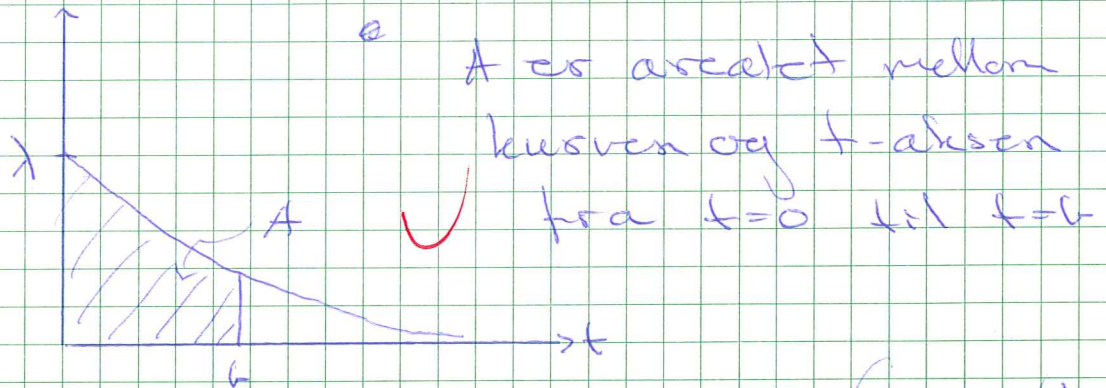 A er arealet mellom
λ
kurven og t-aksen
A
fra t=0 til t=b
t
b